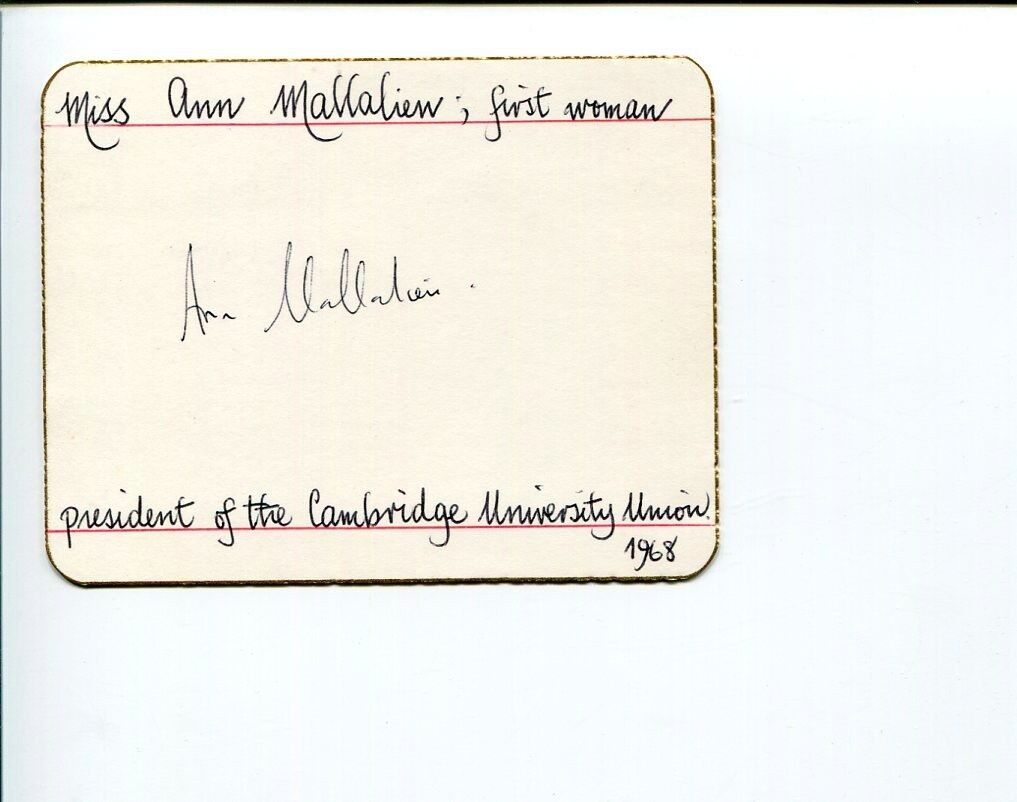 Miss Ann Mallalieu; first woman
Ann Mallalieu.
president of the Cambridge University Union.
1968